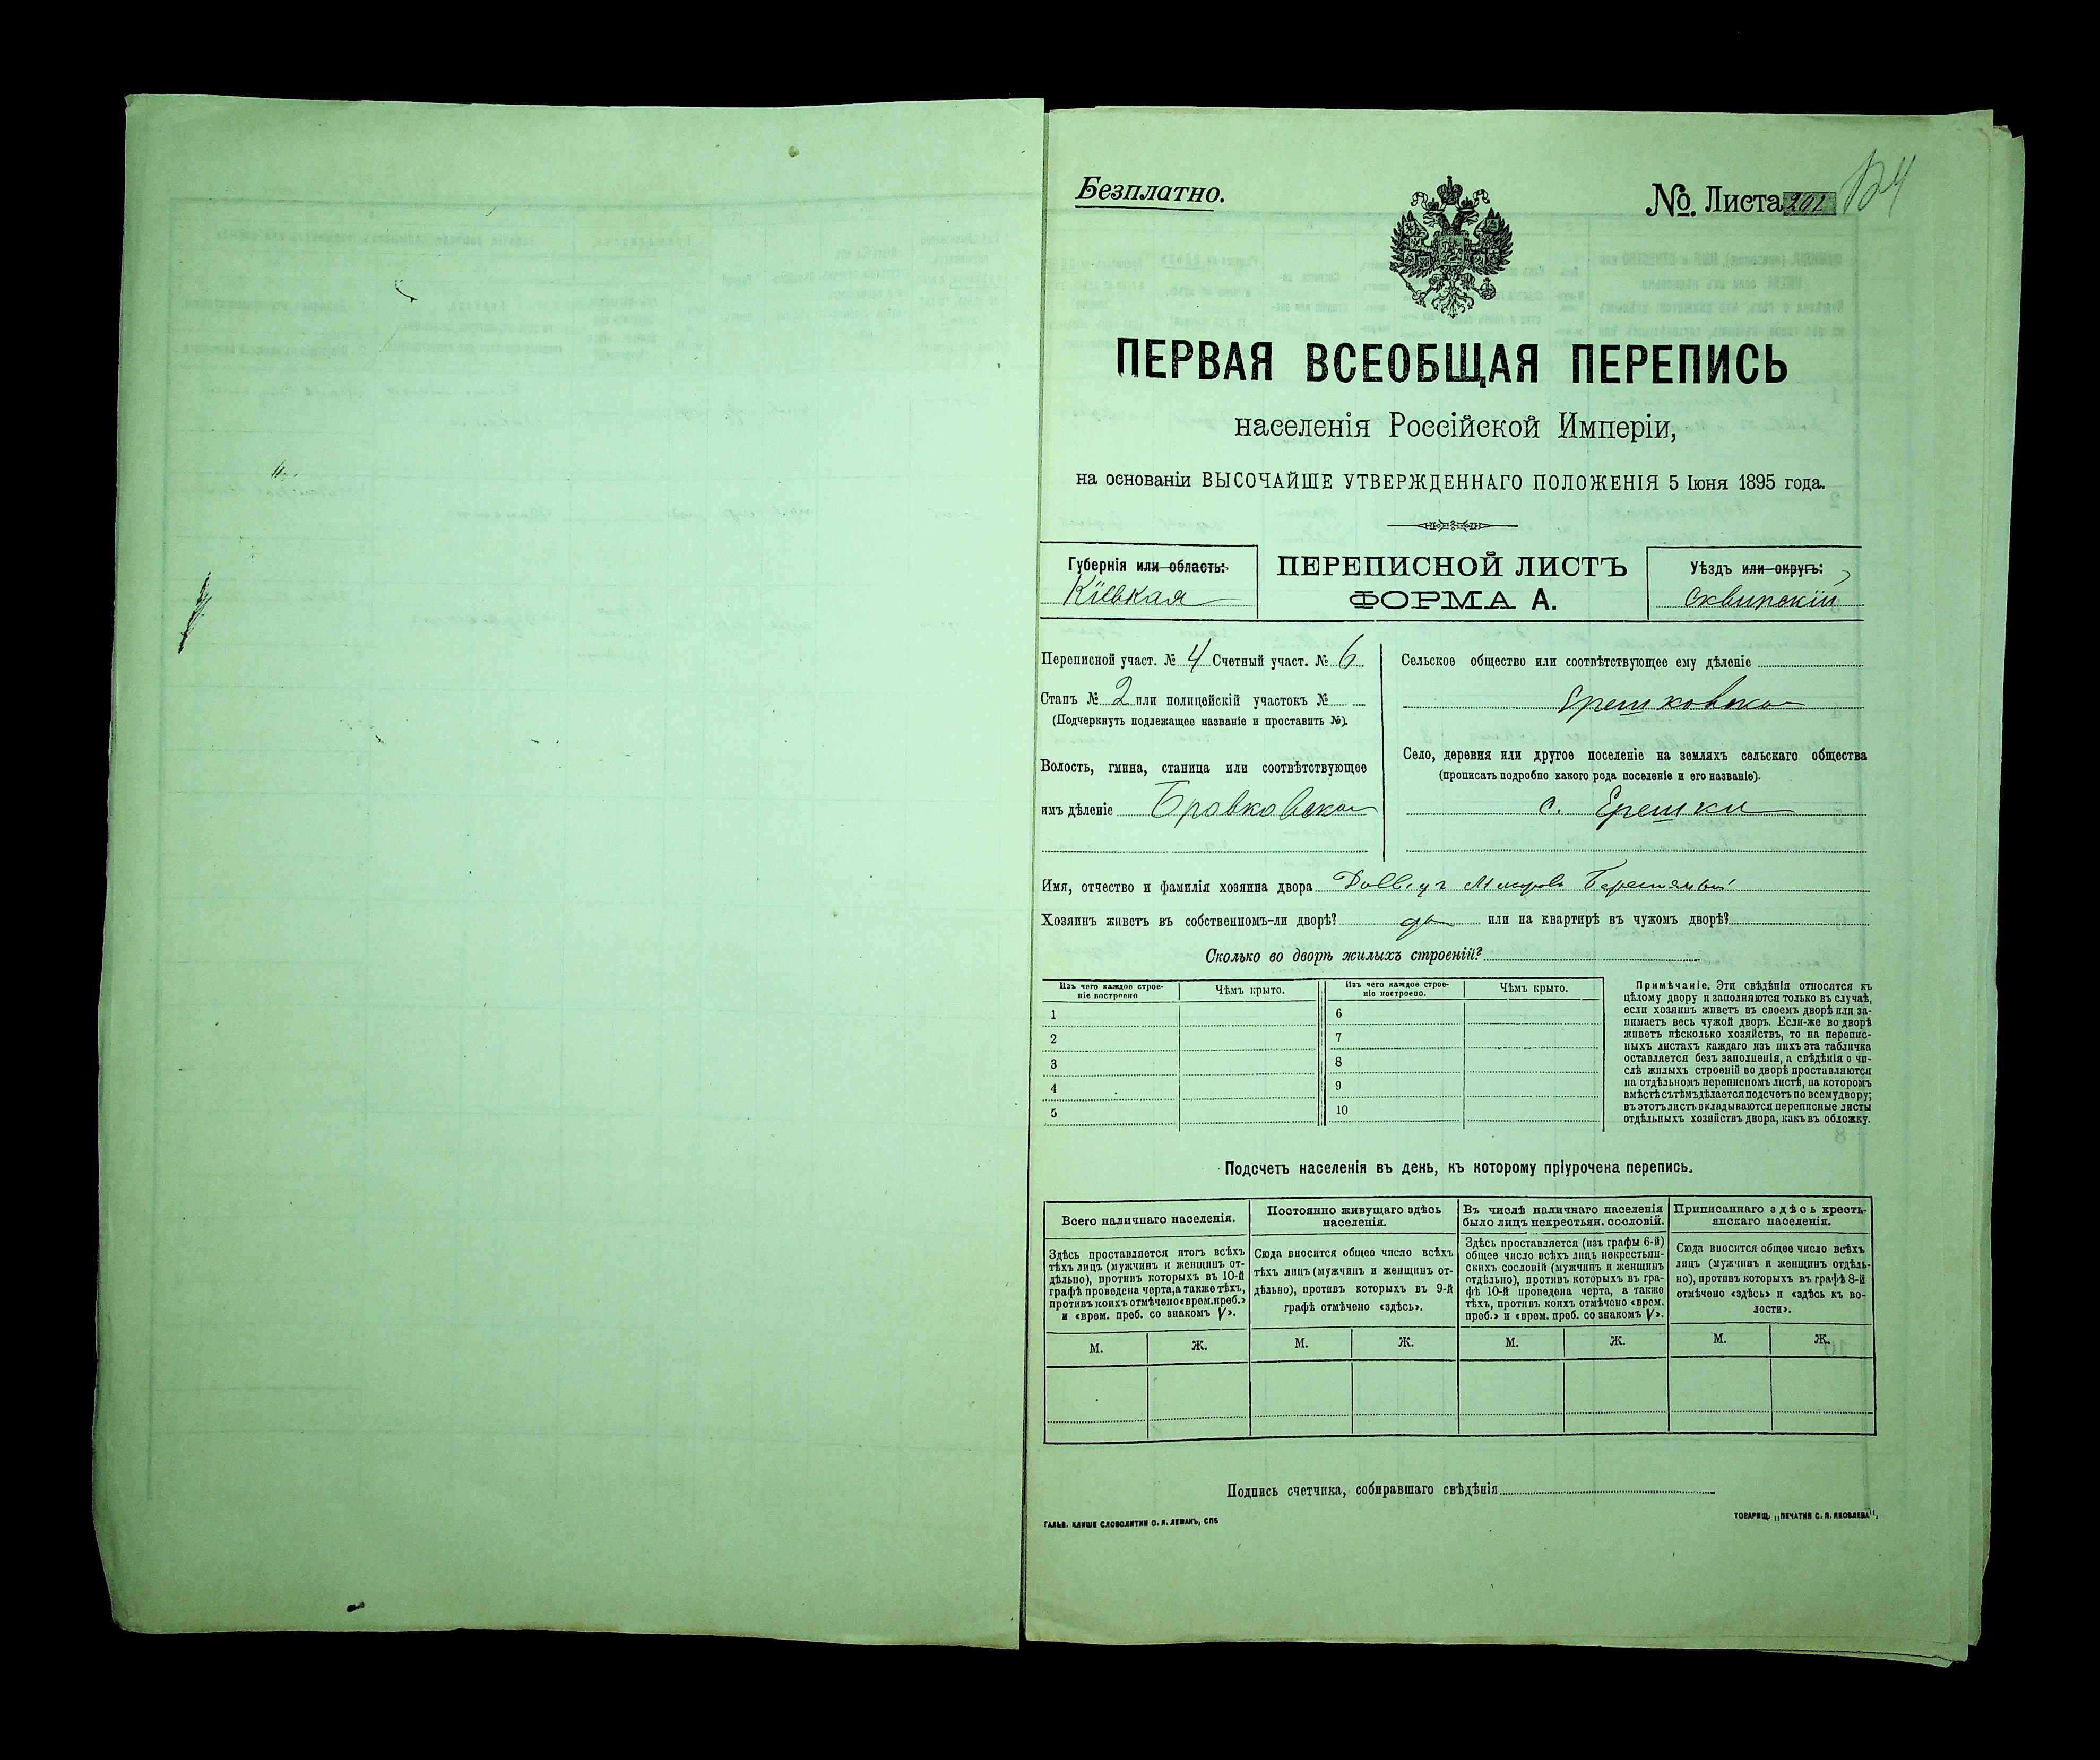 Безплатно.
№. Листа 201
ПЕРВАЯ ВСЕОБЩАЯ ПЕРЕПИСЬ
населенія Россійской Имперіи,
на основаніи ВЫСОЧАЙШЕ УТВЕРЖДЕННАГО ПОЛОЖЕНІЯ 5 Іюня 1895 года.
Губернія или область:
Кіевкая
ПЕРЕПИСНОЙ ЛИСТЪ
ФОРМА А.
Уѣздъ или округъ:
Сквирскій
Переписной участ. № 4 Счетный участ. № 6
Станъ № 2 или полицейскій участокъ №
(Подчеркнуть подлежащее названіе и проставить №).
Волость, гмина, станица или соотвѣтствующее
имъ дѣленіе
Сельское общество или соотвѣтствующее ему дѣленіе
Село, деревня или другое поселеніе на земляхъ сельскаго общества
(прописать подробно какого рода поселеніе и его названіе).
с. Ерешки
Имя, отчество и фамилія хозяина двора
Хозяинъ живетъ въ собственномъ-ли дворѣ? да или на квартирѣ въ чужомъ дворѣ?
Сколько во дворѣ жилыхъ строеній?
Изъ чего каждое строе-
ніе построено
Чѣмъ крыто.
Изъ чего каждое строе-
ніе построено.
Чѣмъ крыто.
1
2
3
4
5
6
7
8
9
10
Примѣчаніе. Эти свѣдѣнія относятся къ
цѣлому двору и заполняются только въ случаѣ,
если хозяинъ живетъ въ своемъ дворѣ или за-
нимаетъ весь чужой дворъ. Если-же во дворѣ
живетъ нѣсколько хозяйствъ, то на перепис-
ныхъ листахъ каждаго изъ нихъ эта табличка
оставляется безъ заполненія, а свѣдѣнія о чи-
слѣ жилыхъ строеній во дворѣ проставляются
на отдѣльномъ переписномъ листѣ, на которомъ
вмѣстѣ съ тѣмъ дѣлается подсчетъ по всему двору;
въ этотъ листъ вкладываются переписные листы
отдѣльныхъ хозяйствъ двора, какъ въ обложку.
Подсчетъ населенія въ день, къ которому пріурочена перепись.
Всего наличнаго населенія.
Здѣсь проставляется итогъ всѣхъ
тѣхъ лицъ (мужчинъ и женщинъ от-
дѣльно), противъ которыхъ въ 10-й
графѣ проведена черта, а также тѣхъ,
противъ коихъ отмѣчено «врем. преб.»
и «врем. преб. со знакомъ V».
М. Ж.
Постоянно живущаго здѣсь
населенія.
Сюда вносится общее число всѣхъ
тѣхъ лицъ (мужчинъ и женщинъ от-
дѣльно), противъ которыхъ въ 9-й
графѣ отмѣчено «здѣсь».
М. Ж.
Въ числѣ наличнаго населенія
было лицъ некрестьян. сословій.
Здѣсь проставляется (изъ графы 6-й)
общее число всѣхъ лицъ некрестьян-
скихъ сословій (мужчинъ и женщинъ
отдѣльно), противъ которыхъ въ гра-
фѣ 10-й проведена черта, а также
тѣхъ, противъ коихъ отмѣчено «врем.
преб.» и «врем. преб. со знакомъ V».
М. Ж.
Приписаннаго здѣсь кресть-
янскаго населенія.
Сюда вносится общее число всѣхъ
лицъ (мужчинъ и женщинъ отдѣль-
но), противъ которыхъ въ графѣ 8-й
отмѣчено «здѣсь» и «здѣсь къ во-
лости».
М. Ж.
Подпись счетчика, собиравшаго свѣдѣнія
ГАЛЬВ. КЛИШЕ СЛОВОЛИТНИ О. И. ЛЕМАНЪ, СПБ
ТОВАРИЩ. „ПЕЧАТНЯ С. П. ЯКОВЛЕВА",